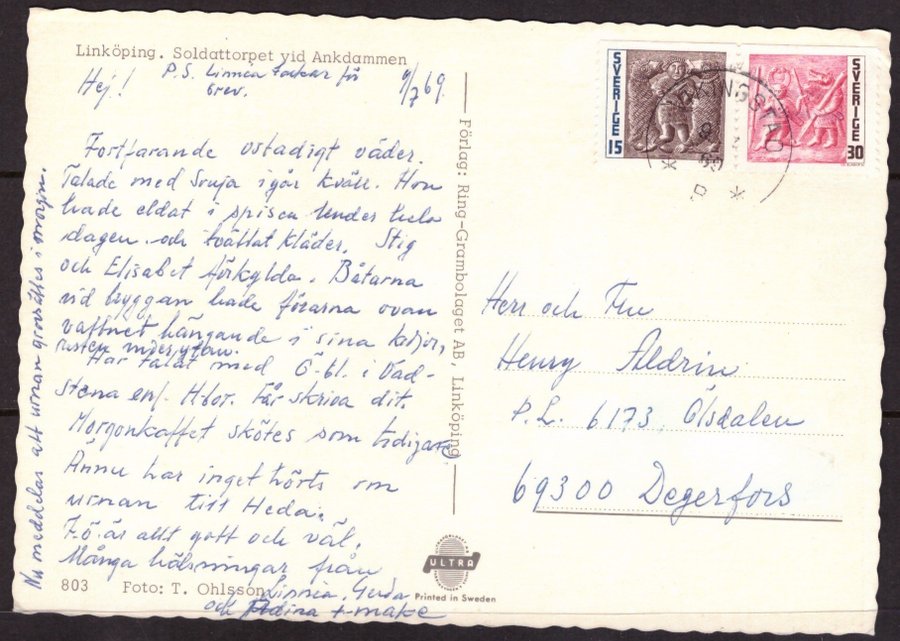 Linköping. Soldattorpet vid Ankdammen
Hej! P.S. Linnea tackar för
brev.
9/7 69.
Fortfarande ostadigt väder.
Talade med Svea igår kväll. Hon
hade eldat i spisen under hela
dagen och tvättat kläder. Stig
och Elisabet förkylda. Båtarna
vid bryggan hade förarna ovan
vattnet hängande i sina kedjor,
resten under ytan.
Har talat med Ö-bl. i Vad-
stena enl. H-bor. Får skriva dit.
Morgonkaffet skötes som tidigare
Ännu har inget hörts om
urnan till Heda.
F.ö. är allt gott och väl.
Många hälsningar från
Linnea, Gerda
och + make
Nu meddelas att urnan gravsättes i morgon.
803 Foto: T. Ohlsson
Förlag: Ring-Grambolaget AB, Linköping
ULTRA
Printed in Sweden
SVERIGE 15
SVERIGE 30
VIKINGSTAD
Herr och Fru
Henry Aldrin
P.L. 6173, Ölsdalen
69300 Degerfors